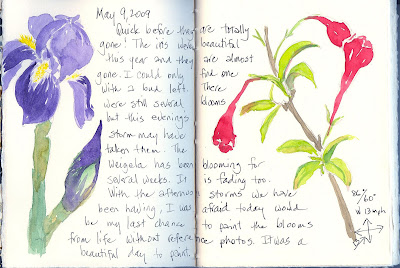 May 9, 2009
Quick before they are totally
gone! The iris were beautiful
this year and they are almost
gone. I could only find one
with a bud left. There
were still several blooms
but this evenings
storm may have
taken them. The
Weigela has been blooming for
several weeks. It is fading too.
With the afternoon storms we have
been having, I was afraid today would
be my last chance to paint the blooms
from life without reference photos. It was a
beautiful day to paint.
86°/60°
W 13 mph